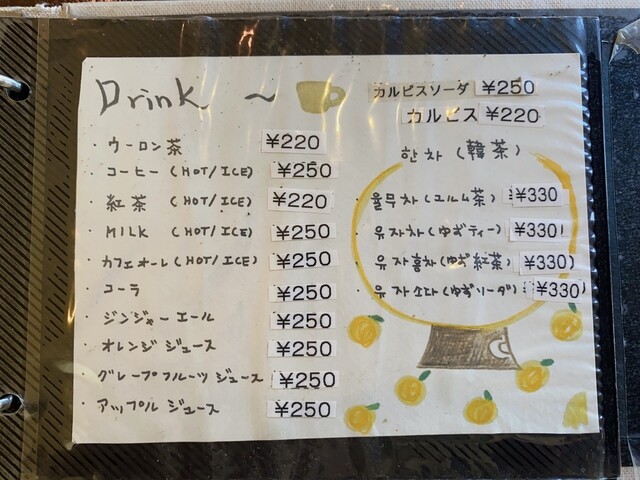 Drink ~
・ウーロン茶 ¥220
・コーヒー (HOT/ICE) ¥250
・紅茶 (HOT/ICE) ¥220
・MILK (HOT/ICE) ¥250
・カフェオーレ (HOT/ICE) ¥250
・コーラ ¥250
・ジンジャーエール ¥250
・オレンジジュース ¥250
・グレープフルーツジュース ¥250
・アップルジュース ¥250
カルピスソーダ ¥250
カルピス ¥220
한차 (韓茶)
・율무차 (ユルム茶) ¥330
・유자차 (ゆずティー) ¥330
・유자홍차 (ゆず紅茶) ¥330
・유자소다 (ゆずソーダ) ¥330